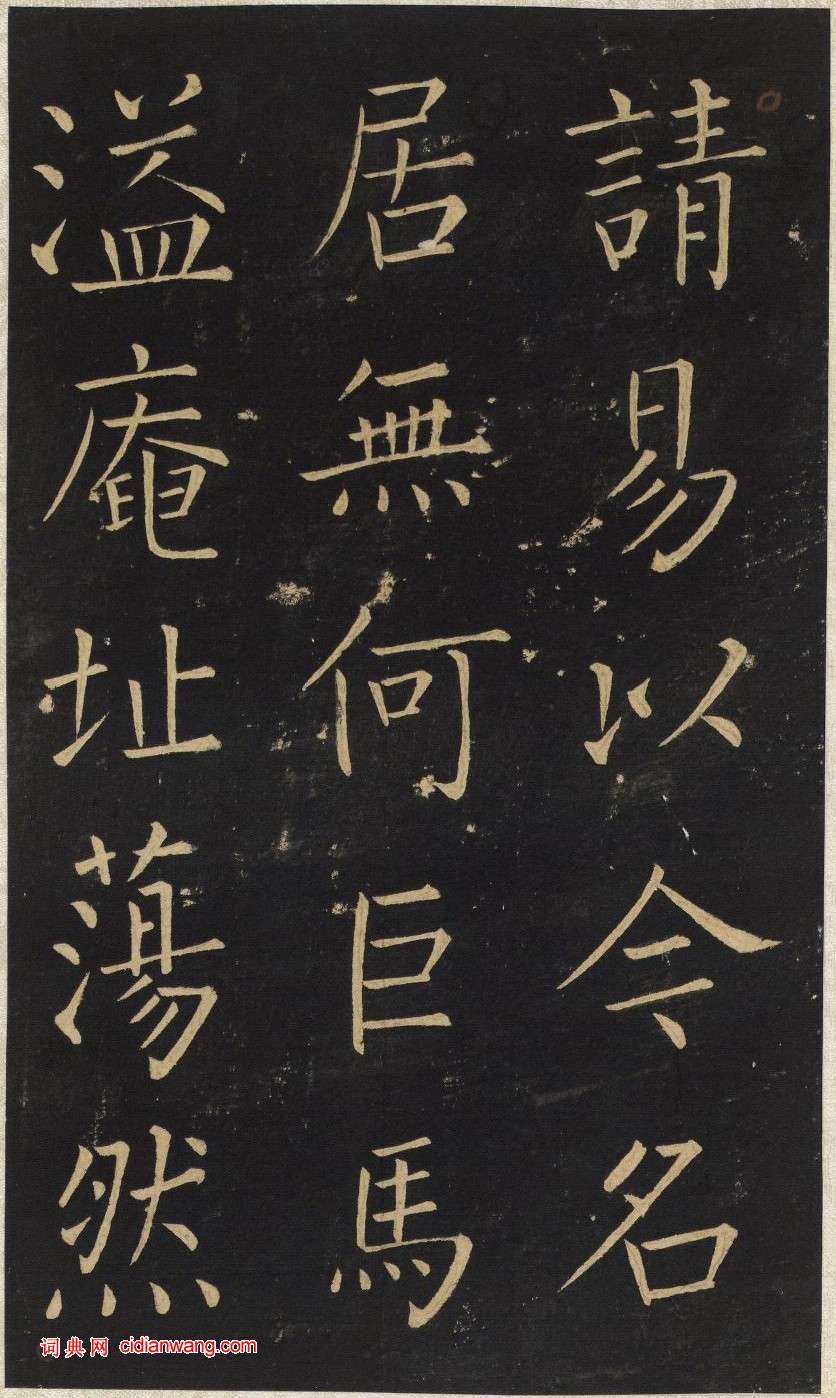 請易以令名
居無何巨馬
溢庵址蕩然
词典网 cidianwang.com